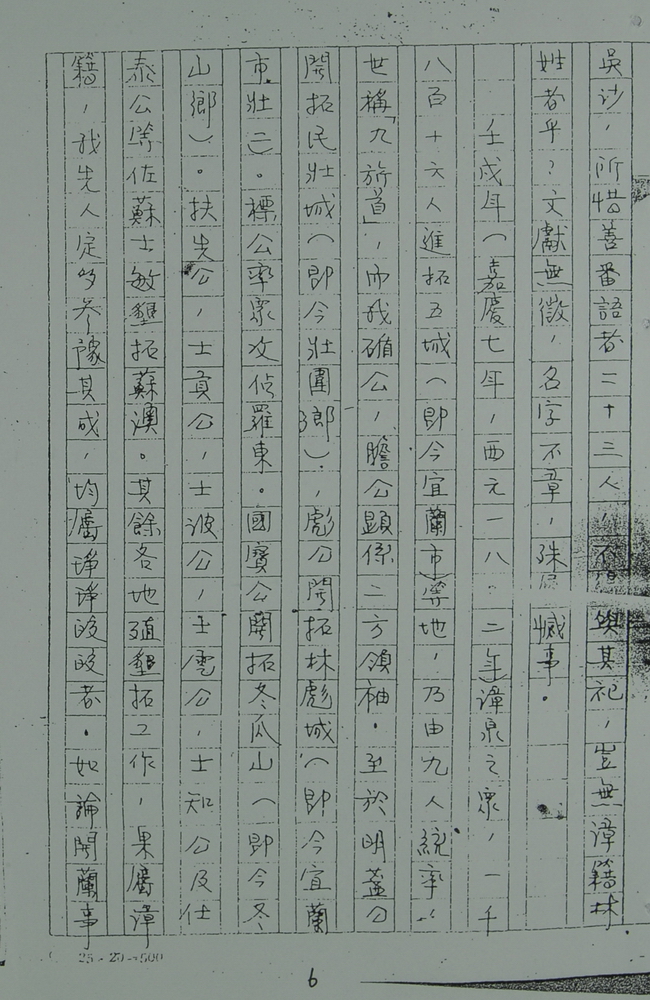 吳沙，所惜善番語者二十三人　與其祀，豈無漳籍林
姓者乎？文獻無徵，名字不章，殊　憾事。
壬戌年（嘉慶七年，西元一八〇二年漳泉之眾，一千
八百十六人進拓五城（即今宜蘭市等地，乃由九人統率，
世稱「九旅首」，而我碷公，膽公顯係二方領袖。至於明蓋公
開拓民壯城（即今壯圍鄉），彪公開拓林彪城（即今宜蘭
市壯二）。標公率眾攻佔羅東。國寶公開拓冬瓜山（即今冬
山鄉）。扶先公，士貢公，士波公，士雲公，士知公及仕
泰公等佐蘇士敏墾拓蘇澳。其餘各地殖墾拓工作，果屬漳
籍，我先人定多參豫其成，均屬琤琤皎皎者。如論開蘭事
25-20-500
6